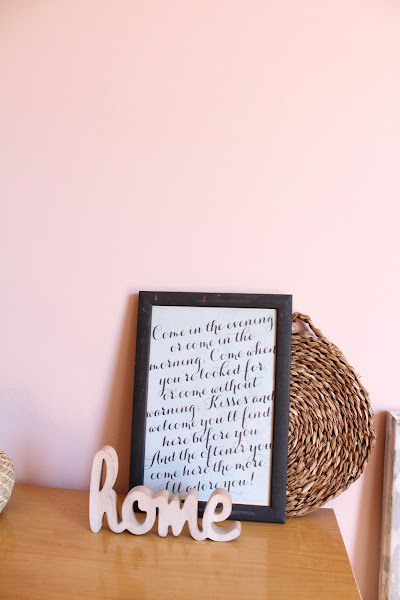 Come in the evening
or come in the
morning. Come when
you're looked for
or come without
warning. Kisses and
welcome you'll find
here before you.
And the oftener you
come here the more
I'll adore you!
home